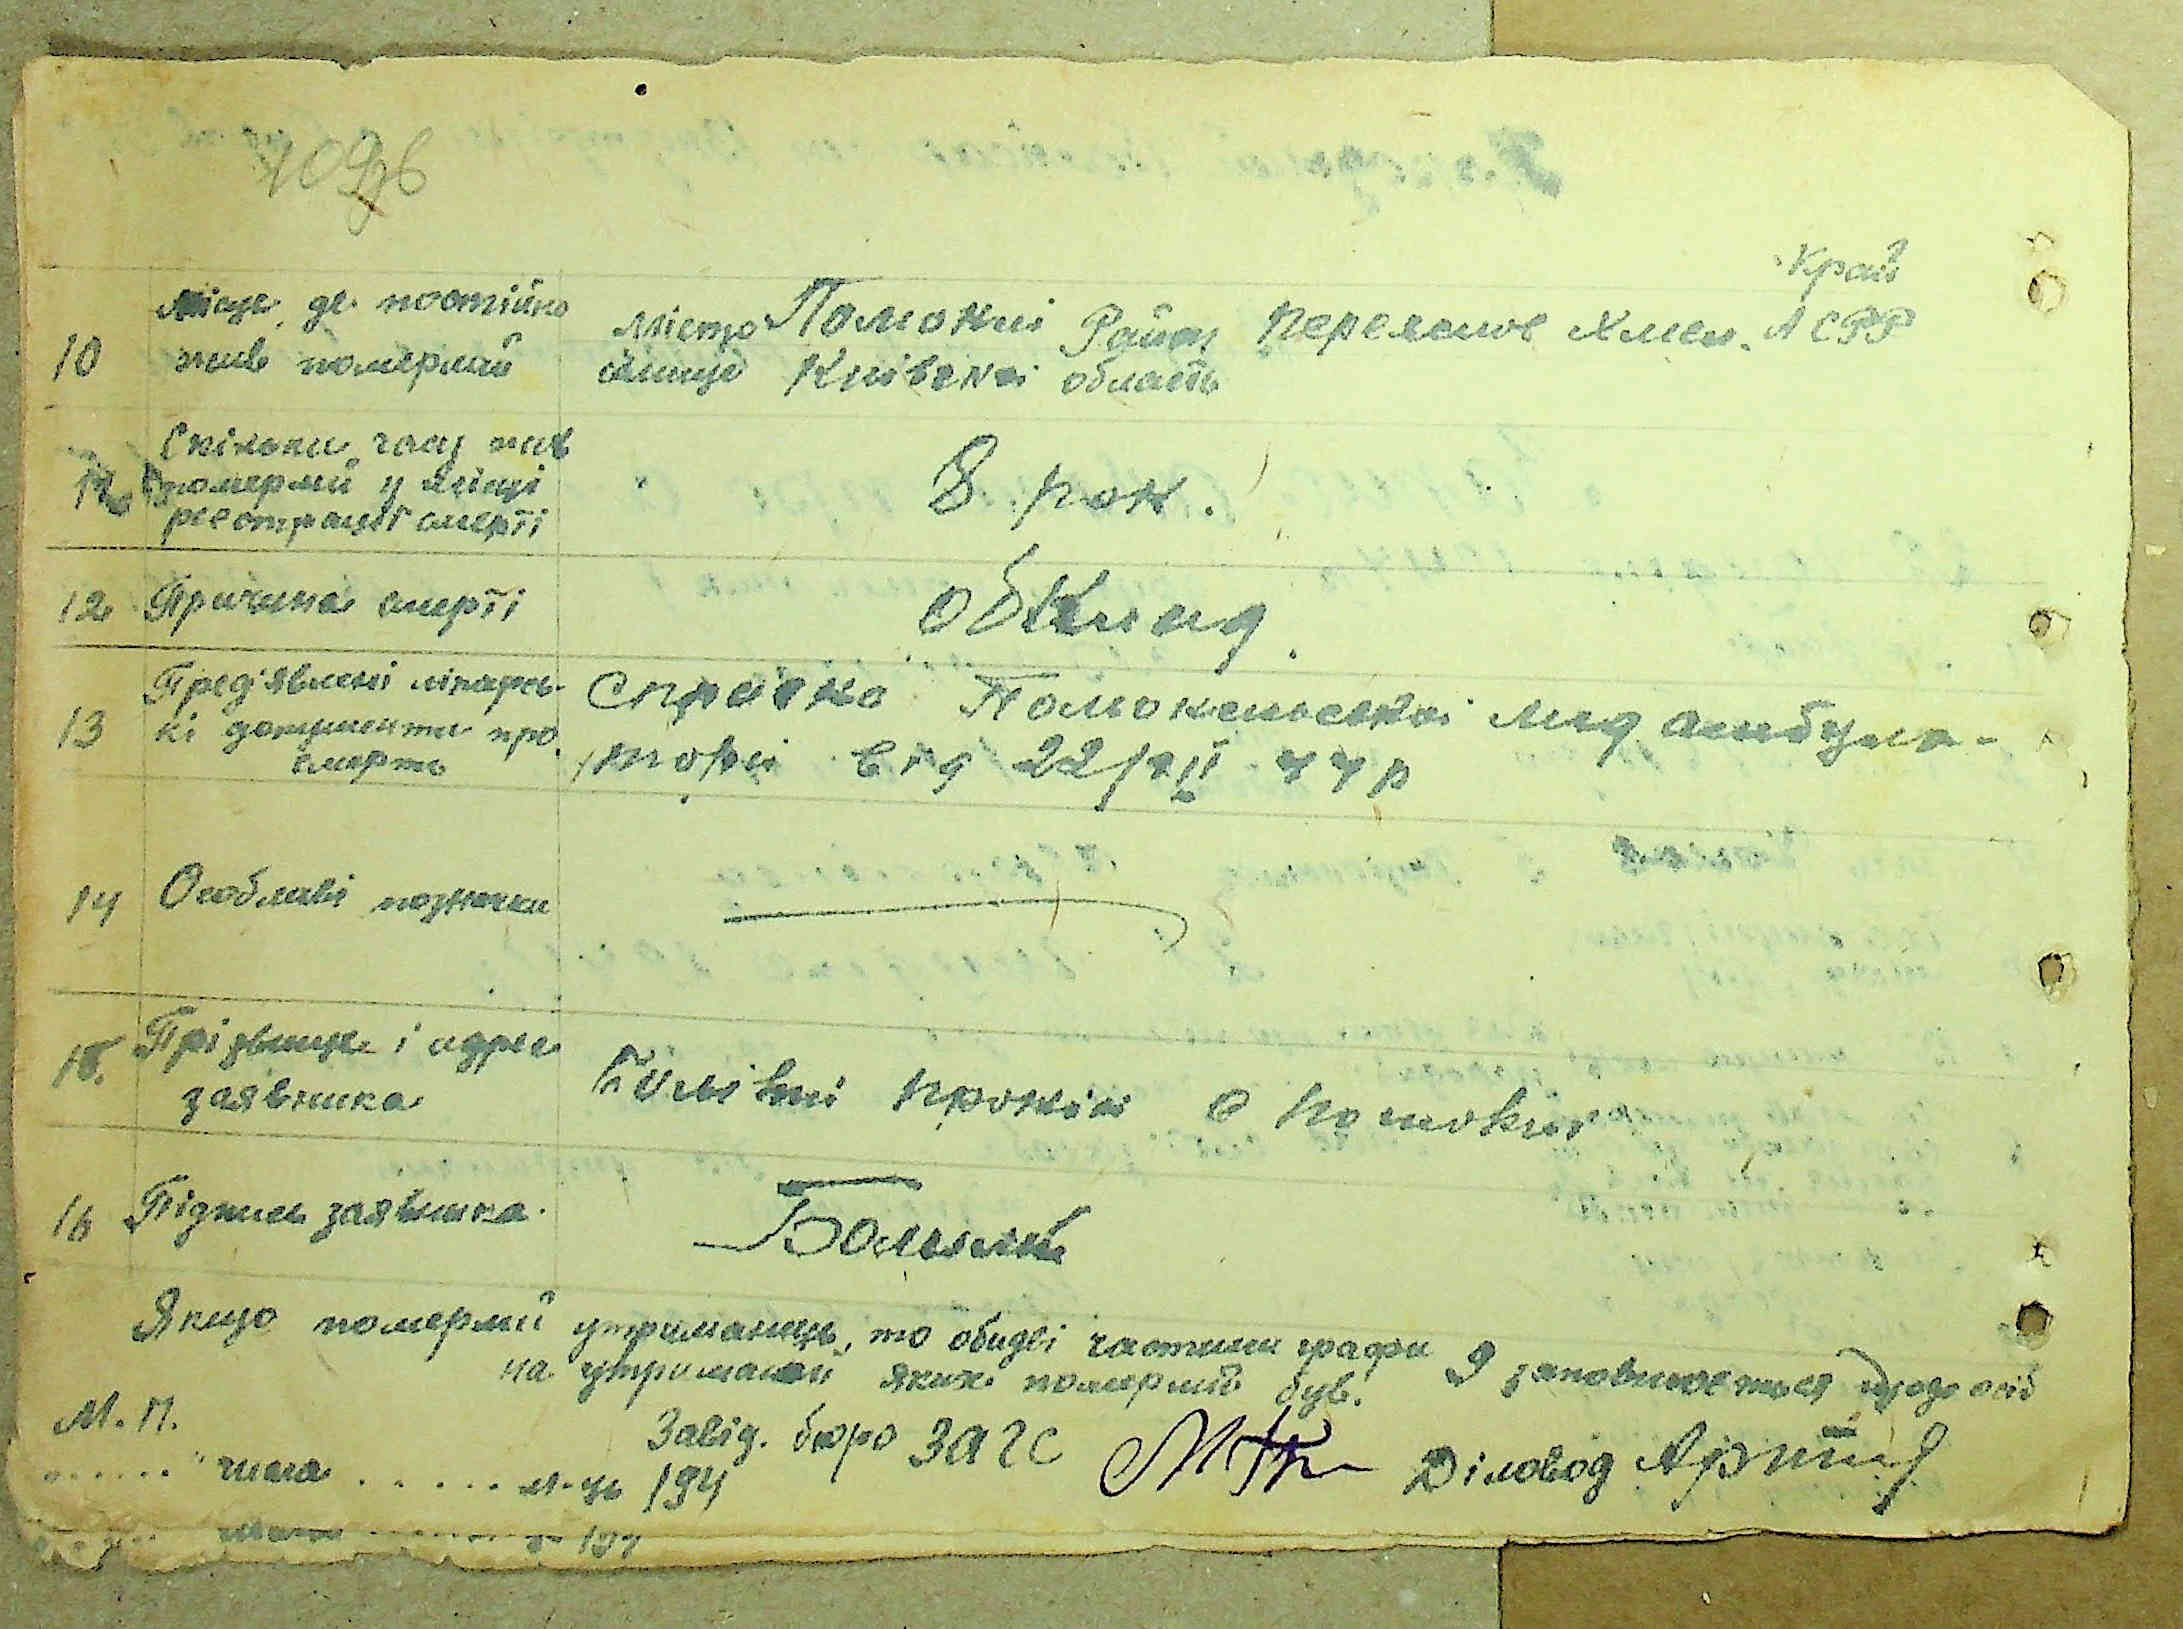 Край
10 Місце, де постійно жив померлий
місто Помоклі Район Переяслав Хмел. АСРР
селище Київської область
11 Скільки часу жив
померлий у місці
реєстрації смерті
8 рок.
12 Причина смерті
13 Пред'явлені лікарсь-
кі документи про
смерть
Справка Помокельської мед амбула-
торії від 22/VII 44 р
14 Особливі позначки
15. Прізвище і адрес
заявника
с Помоклі
16 Підпис заявника.
Якщо померлий утриманець, то обидві частини графи 9 заповнюється щодо осіб
на утриманні яких померлий був.
М. П.
Завід. бюро ЗАГС Діловод
"......" числа ...... м-ць 194